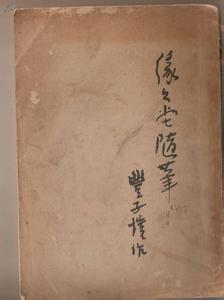 緣緣堂隨筆
豐子愷作